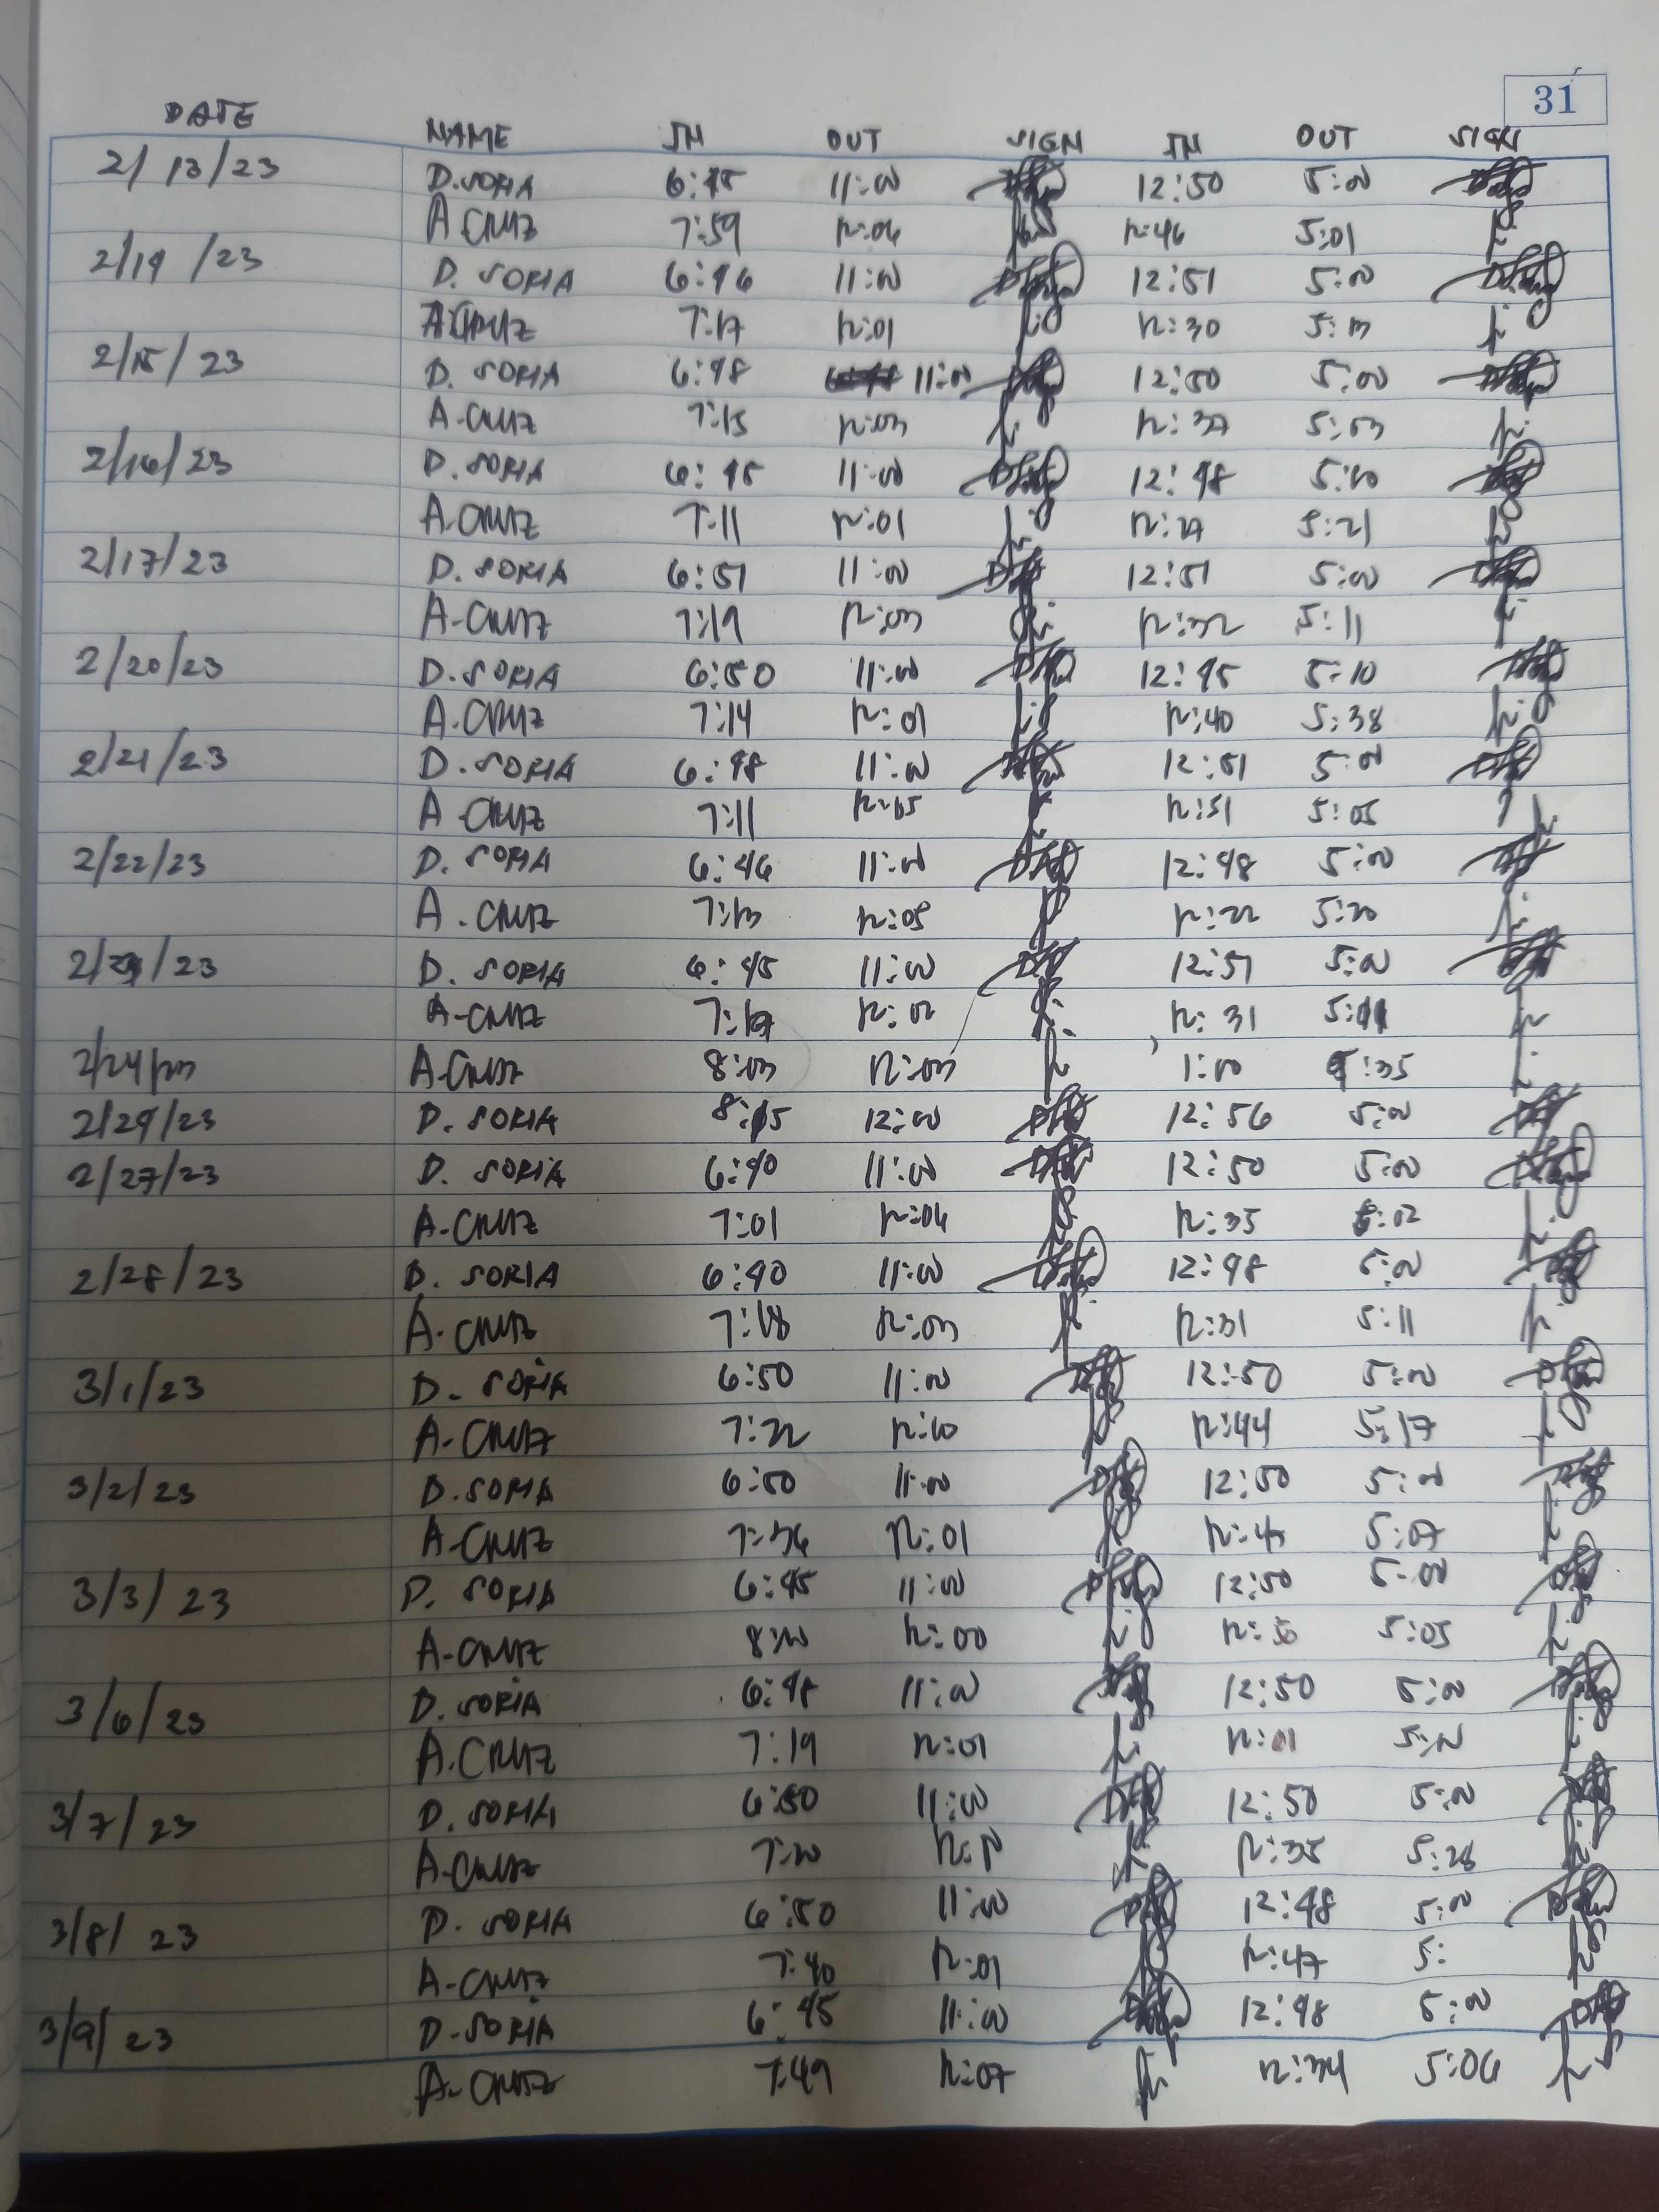 31
DATE NAME IN OUT SIGN IN OUT SIGN
2/13/23 D. SORIA 6:45 11:00 12:50 5:00
A. CRUZ 7:59 12:06 12:46 5:01
2/14/23 D. SORIA 6:46 11:00 12:51 5:00
A. CRUZ 7:17 12:01 12:30 5:13
2/15/23 D. SORIA 6:48 11:00 12:50 5:00
A. CRUZ 7:15 12:03 12:37 5:03
2/16/23 D. SORIA 6:45 11:00 12:48 5:00
A. CRUZ 7:11 12:01 12:27 5:21
2/17/23 D. SORIA 6:51 11:00 12:51 5:00
A. CRUZ 7:19 12:03 12:32 5:11
2/20/23 D. SORIA 6:50 11:00 12:45 5:10
A. CRUZ 7:14 12:01 12:40 5:38
2/21/23 D. SORIA 6:48 11:00 12:51 5:01
A. CRUZ 7:11 12:05 12:31 5:05
2/22/23 D. SORIA 6:46 11:00 12:48 5:00
A. CRUZ 7:13 12:05 12:22 5:20
/23 D. SORIA 6:45 11:00 12:51 5:00
A. CRUZ 12:02 12:31
2/24/23 A. CRUZ 8:03 12:03 1:00 5:35
2/24/23 D. SORIA 8:15 12:00 12:56 5:00
2/27/23 D. SORIA 6:40 11:00 12:50 5:00
A. CRUZ 7:01 12:06 12:35 5:02
2/28/23 D. SORIA 6:40 11:00 12:48 5:00
A. CRUZ 7:18 12:03 12:31 5:11
3/1/23 D. SORIA 6:50 11:00 12:50 5:00
A. CRUZ 7:22 12:10 12:44 5:17
3/2/23 D. SORIA 6:50 11:00 12:50 5:00
A. CRUZ 7:36 12:01 5:07
3/3/23 D. SORIA 6:45 11:00 12:50 5:00
A. CRUZ 12:00 5:05
3/6/23 D. SORIA 6:48 11:00 12:50 5:00
A. CRUZ 7:19 12:01 12:01
3/7/23 D. SORIA 6:50 11:00 12:50 5:00
A. CRUZ 7:20 12:35
3/8/23 D. SORIA 6:50 11:00 12:48 5:00
A. CRUZ 7:40 12:01 12:47 5:
3/9/23 D. SORIA 6:45 11:00 12:48 5:00
A. CRUZ 7:49 12:07 12:34 5:06